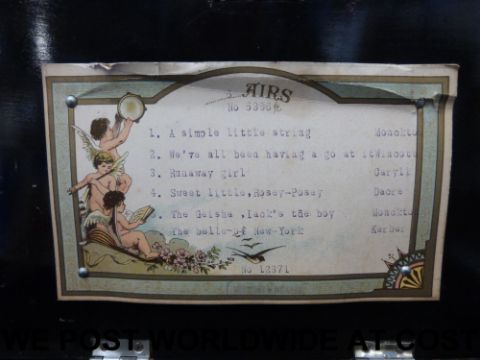 AIRS
1. A simple little string Monckto
2. We've all been having a go at it Wincott
3. Runaway girl Caryll
4. Sweet little, Rosey-Posey Dacre
5. The Geisha ,Jack's the boy Monckto
The belle of New-York Kerker
No 12371
WE POST WORLDWIDE AT COST